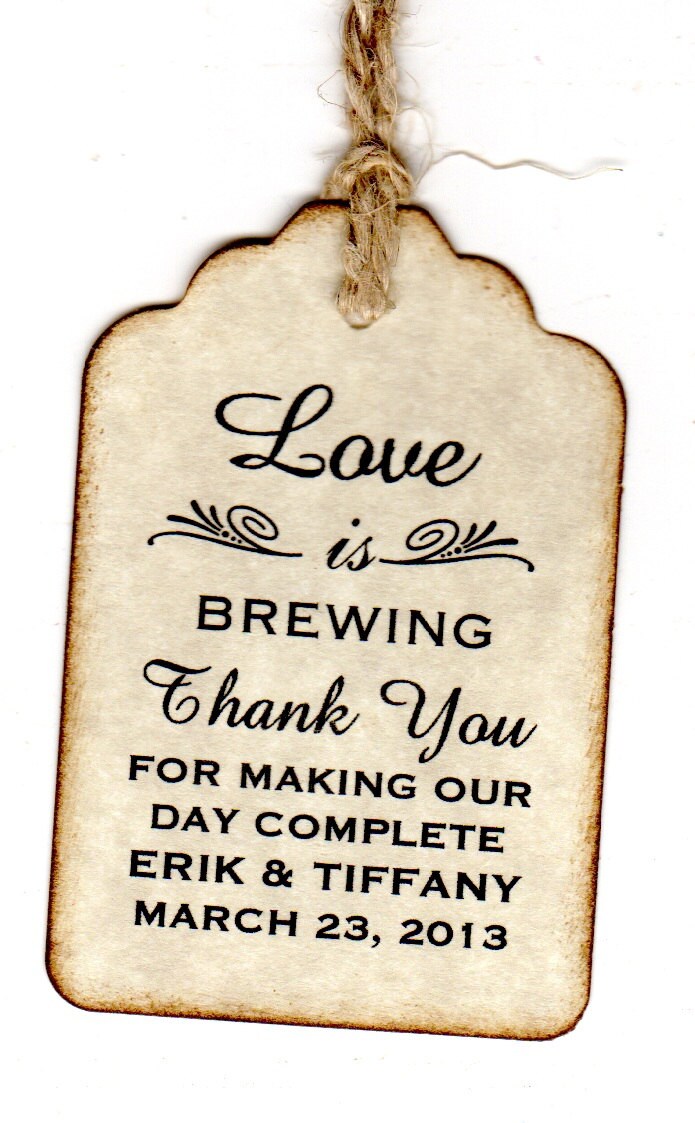 Love
is
BREWING
Thank You
FOR MAKING OUR
DAY COMPLETE
ERIK & TIFFANY
MARCH 23, 2013